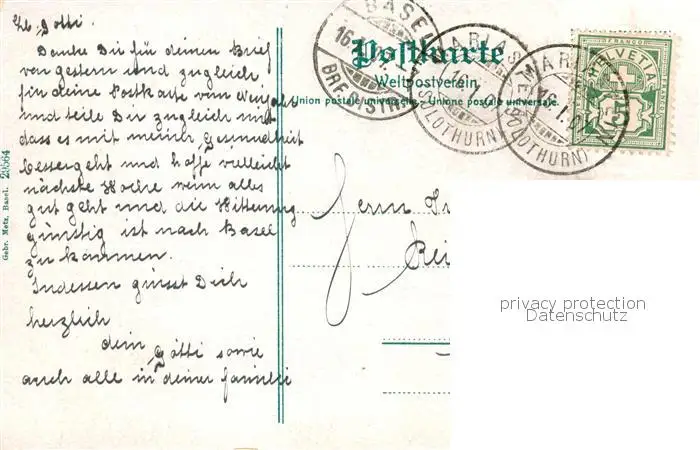 Lb. Götti.
Danke Dir für deinen Brief
von gestern und zugleich
für deine Postkarte vom
und teile Dir zugleich mit
dass es mit meiner Gesundheit
besser geht und hoffe vielleicht
nächste Woche wenn alles
gut geht und die Witterung
günstig ist nach Basel
zu kommen.
Indessen grüsst Dich
herzlich
dein Götti sowie
auch alle in deiner Familie
Gebr. Metz, Basel. 28564
Postkarte
Weltpostverein
Union postale universelle. - Unione postale universale.
BASEL
16.
BRF. EXP.
MARIAST
16. I. 0
(SOLOTHURN)
MARIA
16. I. 0
(SOLOTHURN)
FRANCO
HELVETIA
5
Herrn
privacy protection
Datenschutz